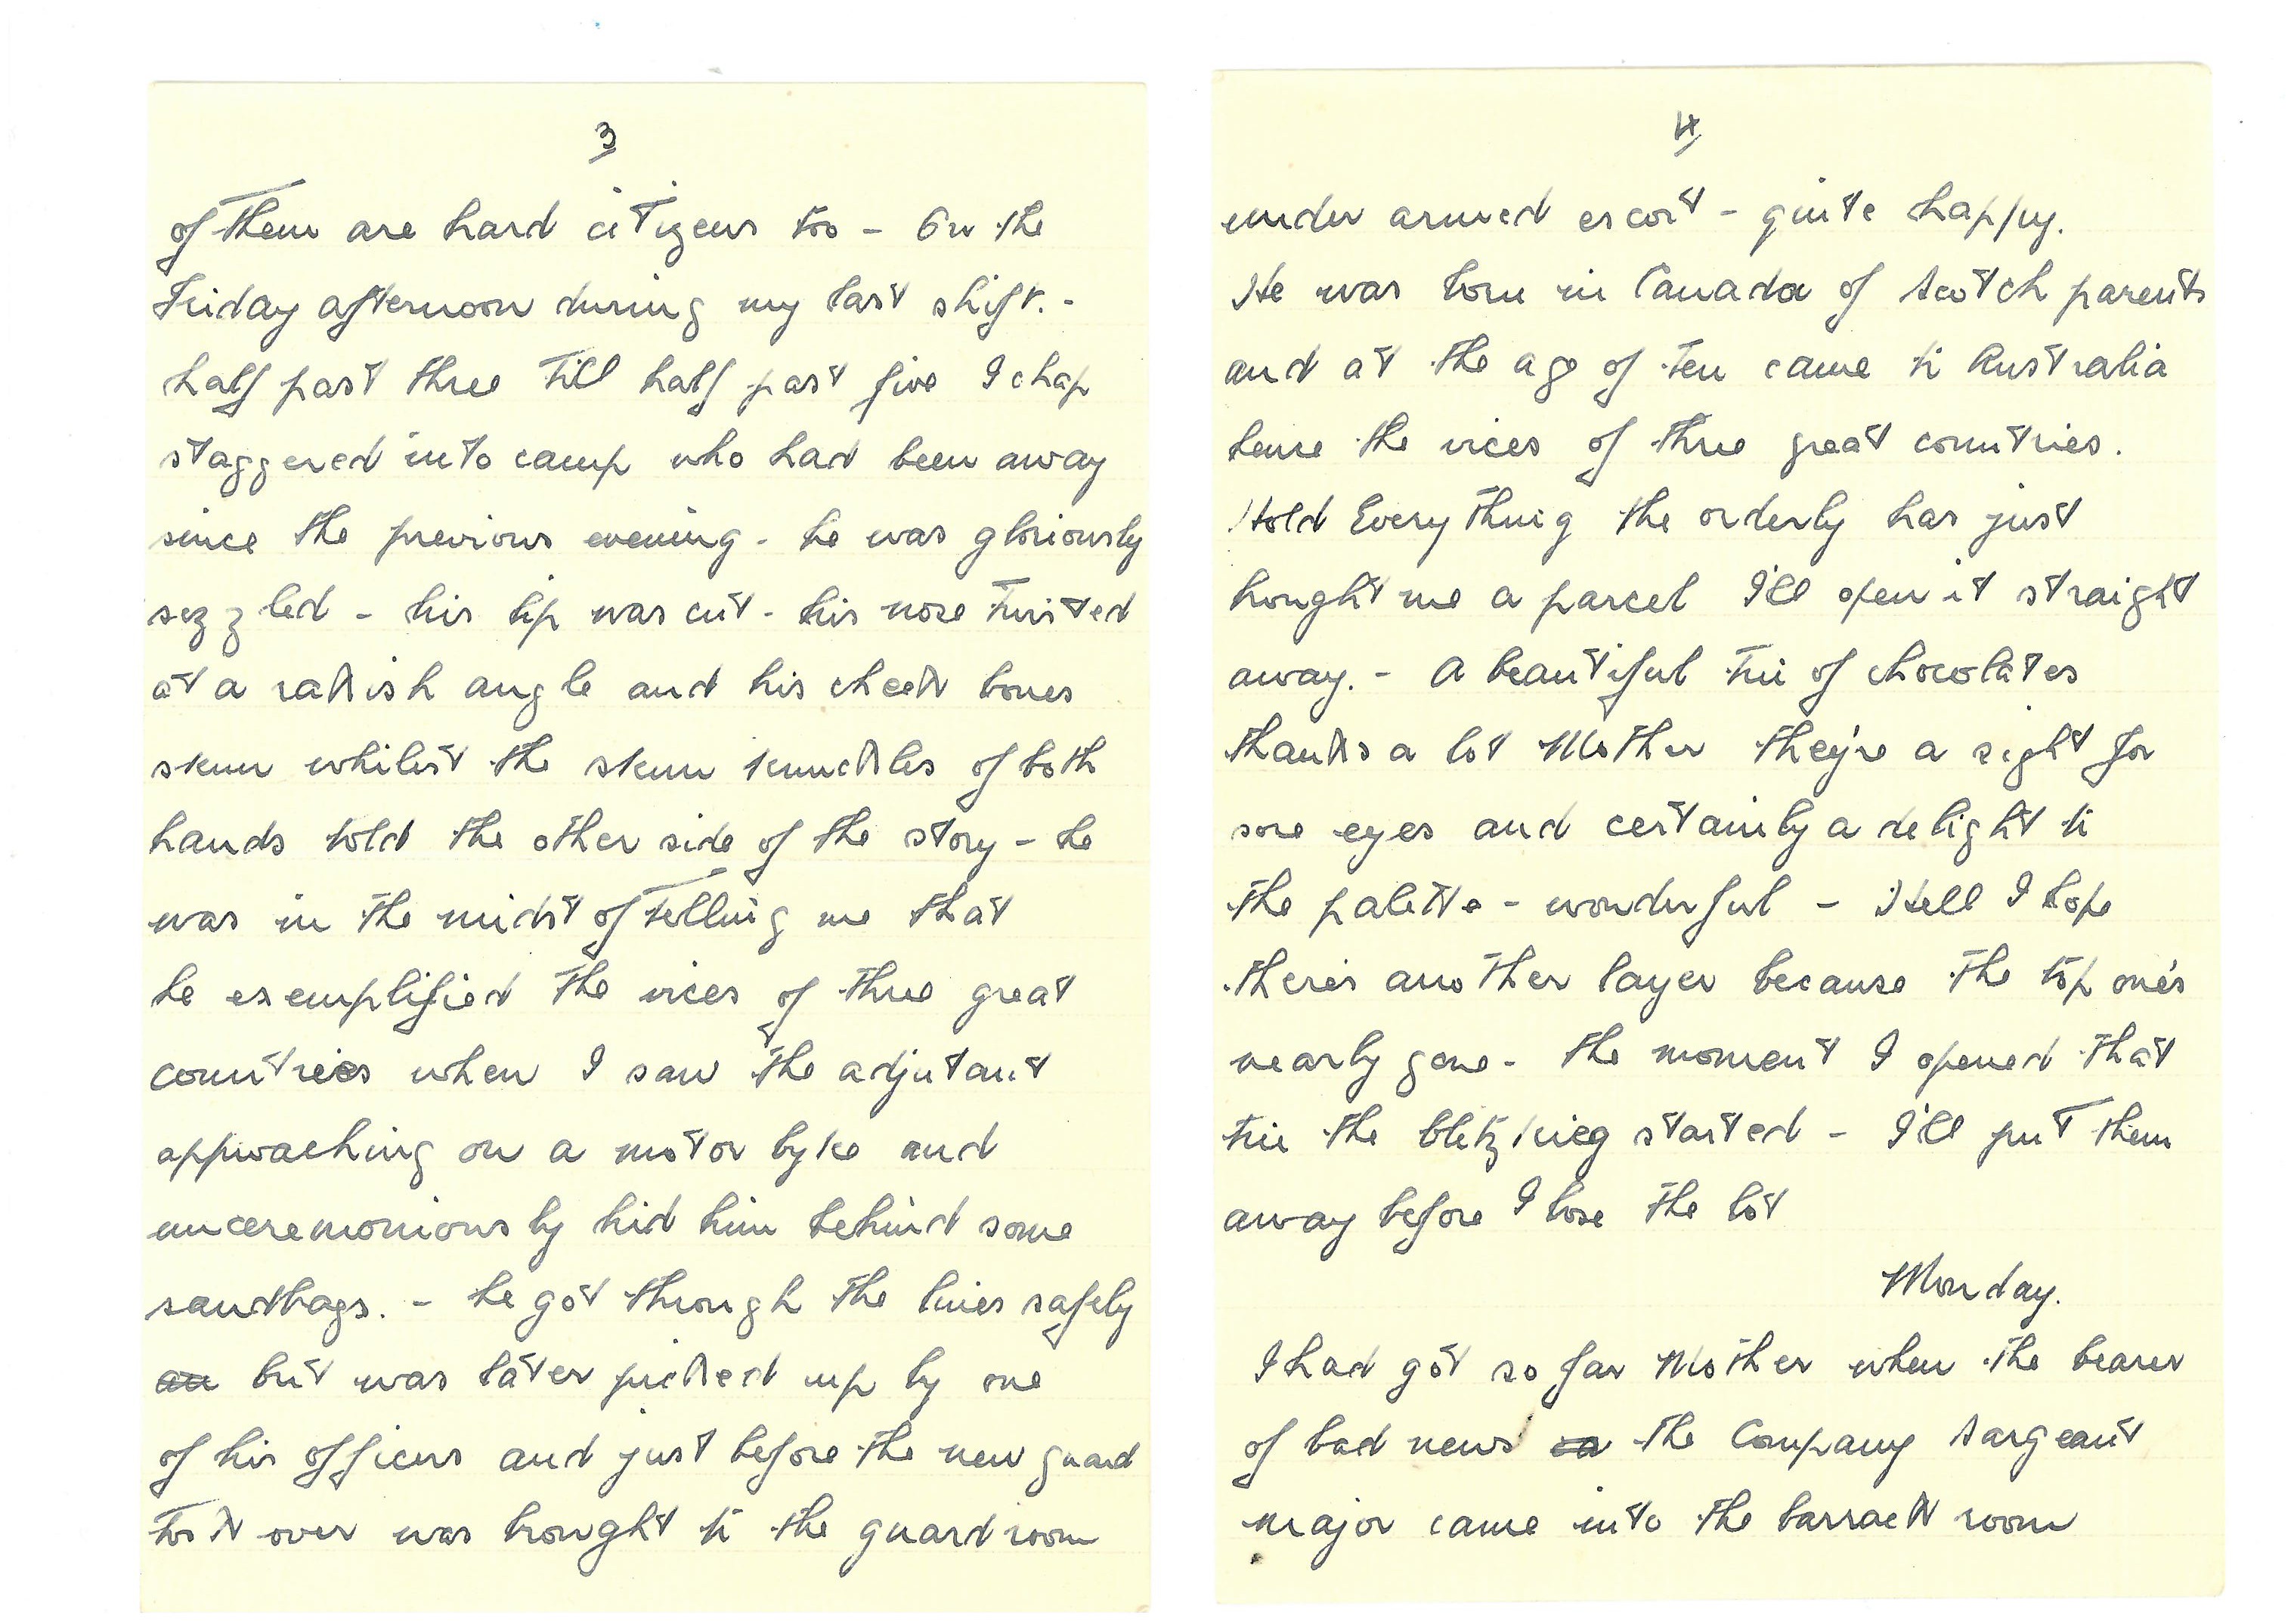 3
of them are hard citizens too - On the
Friday afternoon during my last shift. -
half past three till half past five I chap
staggered into camp who had been away
since the previous evening - he was gloriously
sozzled - his lip was cut - his nose twisted
at a rakish angle and his cheek bones
skun whilest the skun knuckles of both
hands told the other side of the story - he
was in the midst of telling me that
he exemplified the vices of three great
countries when I saw the adjutant
approaching on a motor byke and
unceremoniously hid him behind some
sandbags. - he got through the lines safely
an but was later picked up by one
of his officers and just before the new guard
took over was brought to the guard room
4
under armed escort - quite happy.
He was born in Canada of Scotch parents
and at the age of ten came to Australia
hense the vices of three great countries.
Hold Everything the orderly has just
brought me a parcel I'll open it straight
away. - A beautiful tin of chocolates
thanks a lot Mother they're a sight for
sore eyes and certainly a delight to
the palette - wonderful - Hell I hope
there's another layer because the top one's
nearly gone - the moment I opened that
tin the blitzkieg started - I'll put them
away before I lose the lot
Monday.
I had got so far Mother when the bearer
of bad news ca the Company Sargeant
major came into the barrack room